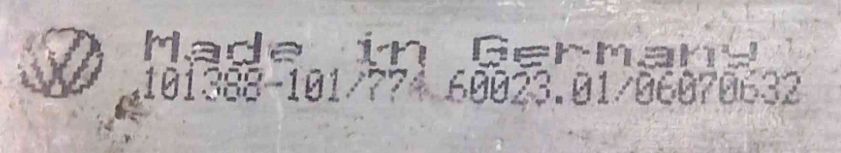 Made in Germany
101388-101/774 60023.01/06070632